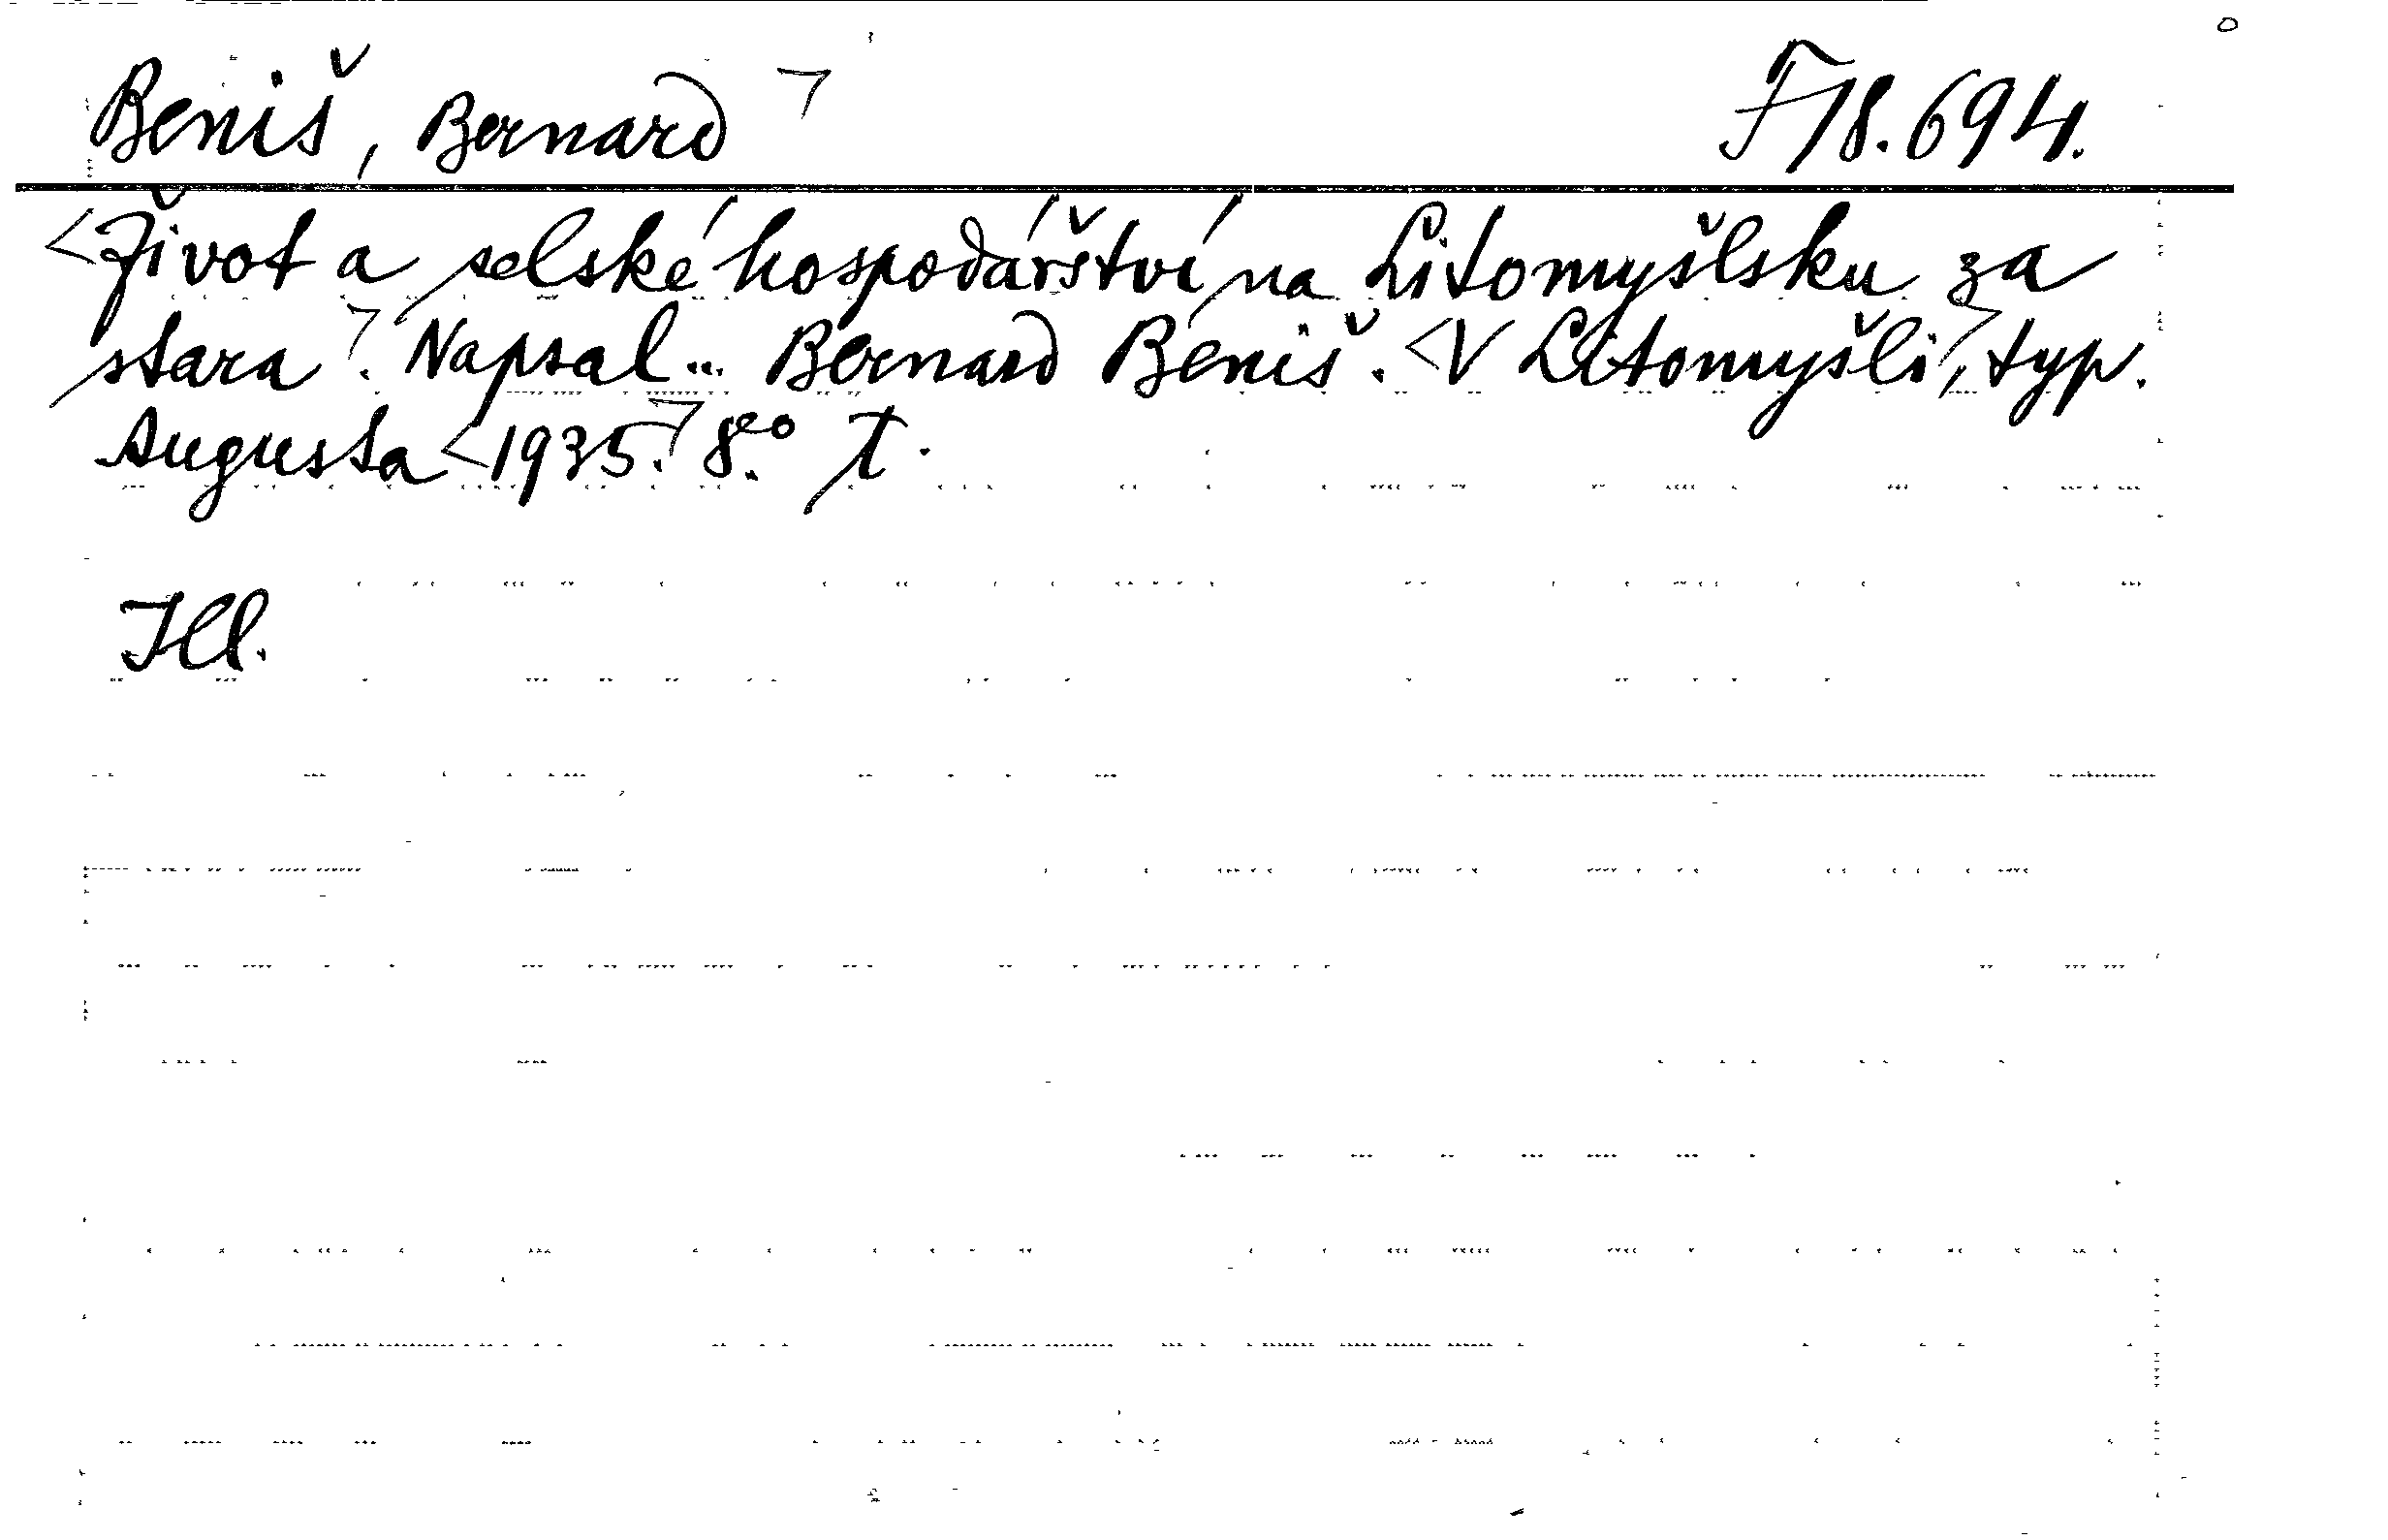 Beniš, Bernard ㄱ F 18.694.
<Život a selské hospodářství na Litomyšlsku za
stara ㄱ. Napsal... Bernard Beniš. <V Litomyšli ㄱ, typ.
Augusta <1935. ㄱ 8.eo T.
Ill.